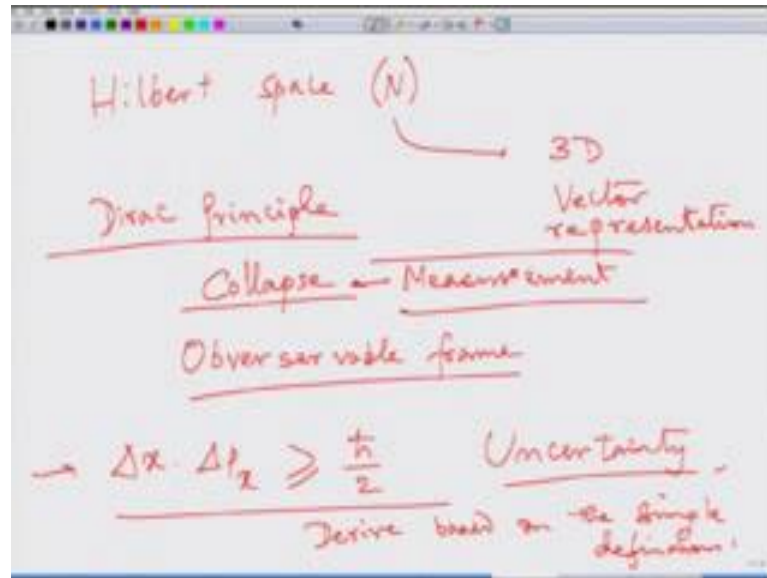 Hilbert space (N)
3D
Vector
representation
Dirac Principle
Collapse - Measurement
Obverservable frame
→ Δx. ΔPx ⩾ ħ/2 Uncertainty.
Derive based on the simple